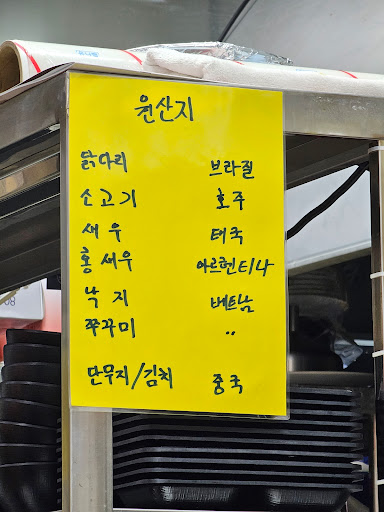 원산지
닭다리 브라질
소고기 호주
새우 태국
홍새우 아르헨티나
낙지 베트남
쭈꾸미 〃
단무지/김치 중국